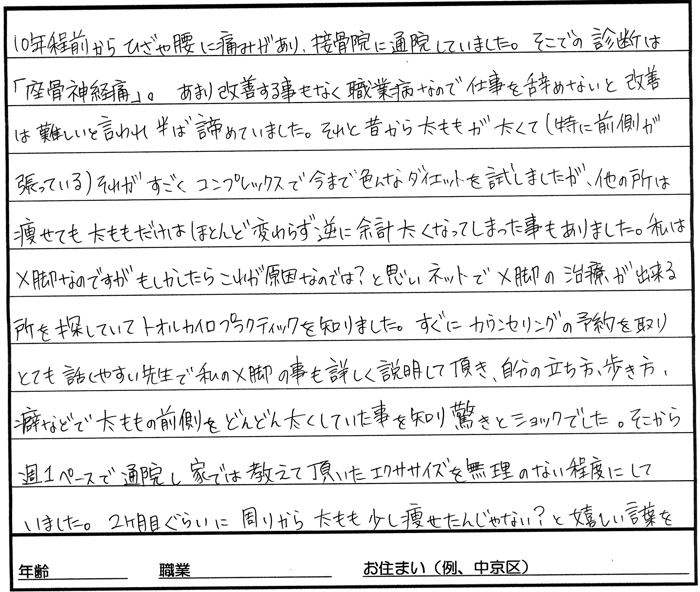 10年程前からひざや腰に痛みがあり、接骨院に通院していました。そこでの診断は
「座骨神経痛」。あまり改善する事もなく職業病なので仕事を辞めないと改善
は難しいと言われ半ば諦めていました。それと昔から太ももが太くて(特に前側が
張っている)それがすごくコンプレックスで今まで色んなダイエットを試しましたが、他の所は
痩せても太ももだけはほとんど変わらず逆に余計太くなってしまった事もありました。私は
X脚なのですがもしかしたらこれが原因なのでは?と思いネットでX脚の治療が出来る
所を探していてトオルカイロプラクティックを知りました。すぐにカウンセリングの予約を取り
とても話しやすい先生で私のX脚の事も詳しく説明して頂き、自分の立ち方、歩き方、
癖などで太ももの前側をどんどん太くしていた事を知り驚きとショックでした。そこから
週1ペースで通院し家では教えて頂いたエクササイズを無理のない程度にして
いました。2ヶ月目ぐらいに周りから太もも少し痩せたんじゃない?と嬉しい言葉を
年齢 職業 お住まい(例、中京区)